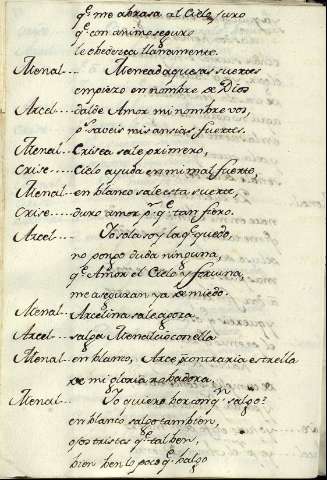 q.e me abrasa al Cielo juro
q.e con animo seguro
le obedezca llanamente.
Menal... Menead aquesas suertes
empiezo en nombre de Dios
Arcel... dalde Amor mi nombre vos,
p.s saveis mis ansias fuertes.
Menal... Crisea sale primero,
Crise... Cielo ayuda en mi mal fuerte,
Menal... en blanco sale esta suerte,
Crise.... duro amor p.r q.e tan fiero.
Arcel... Yo sola soy la q.e quedo,
no pongo duda ninguna,
q.e Amor el Cielo y fortuna,
me aseguran ya de miedo.
Menal... Arcelina sale agora.
Arcel... salga Menalcio con ella
Menal... en blanco, Arce contraria estrella
de mi gloria robadora,
Menal... Yo quiero ber con q.n salgo?
en blanco salgo tambien,
ojos tristes q.e tal ben,
bien ben lo poco q.e balgo